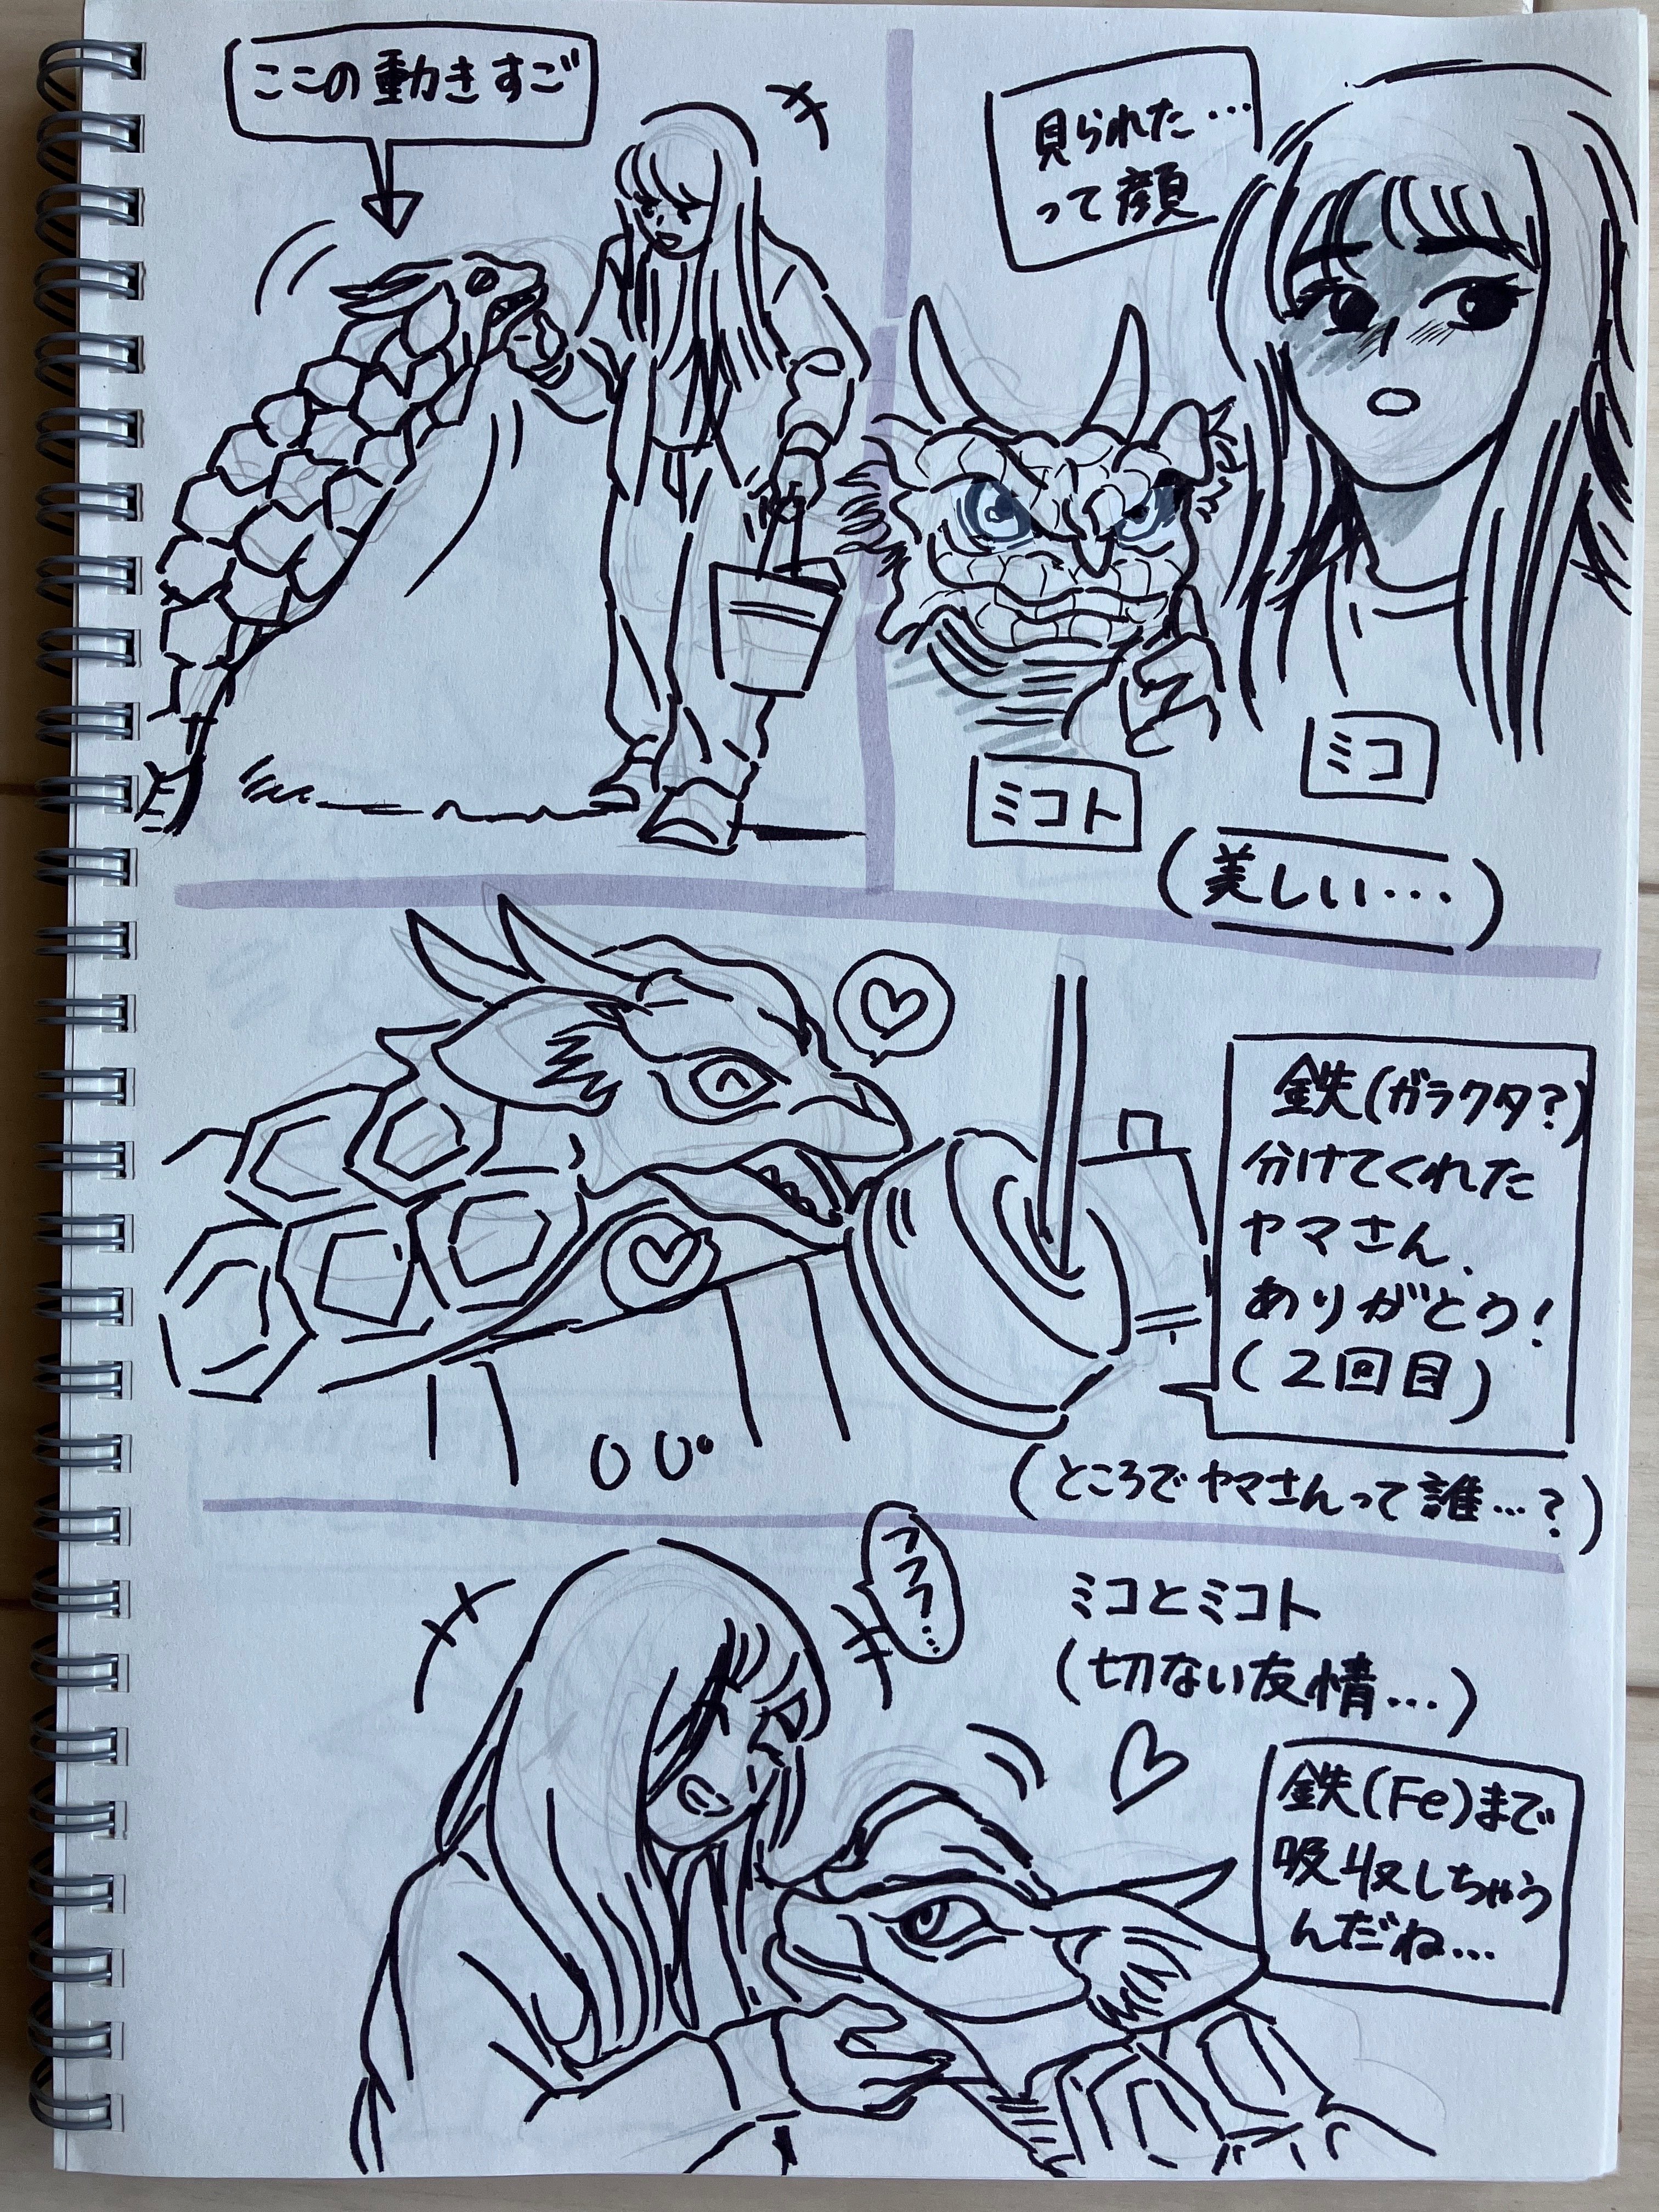 ここの動きすご
見られた…
って顔
ミコ
ミコト
(美しい…)
鉄(ガラクタ?)
分けてくれた
ヤマさん、
ありがとう!
(2回目)
(ところでヤマさんって誰…?)
フフフ…
ミコとミコト
(切ない友情…)
鉄(Fe)まで
吸収しちゃう
んだね…